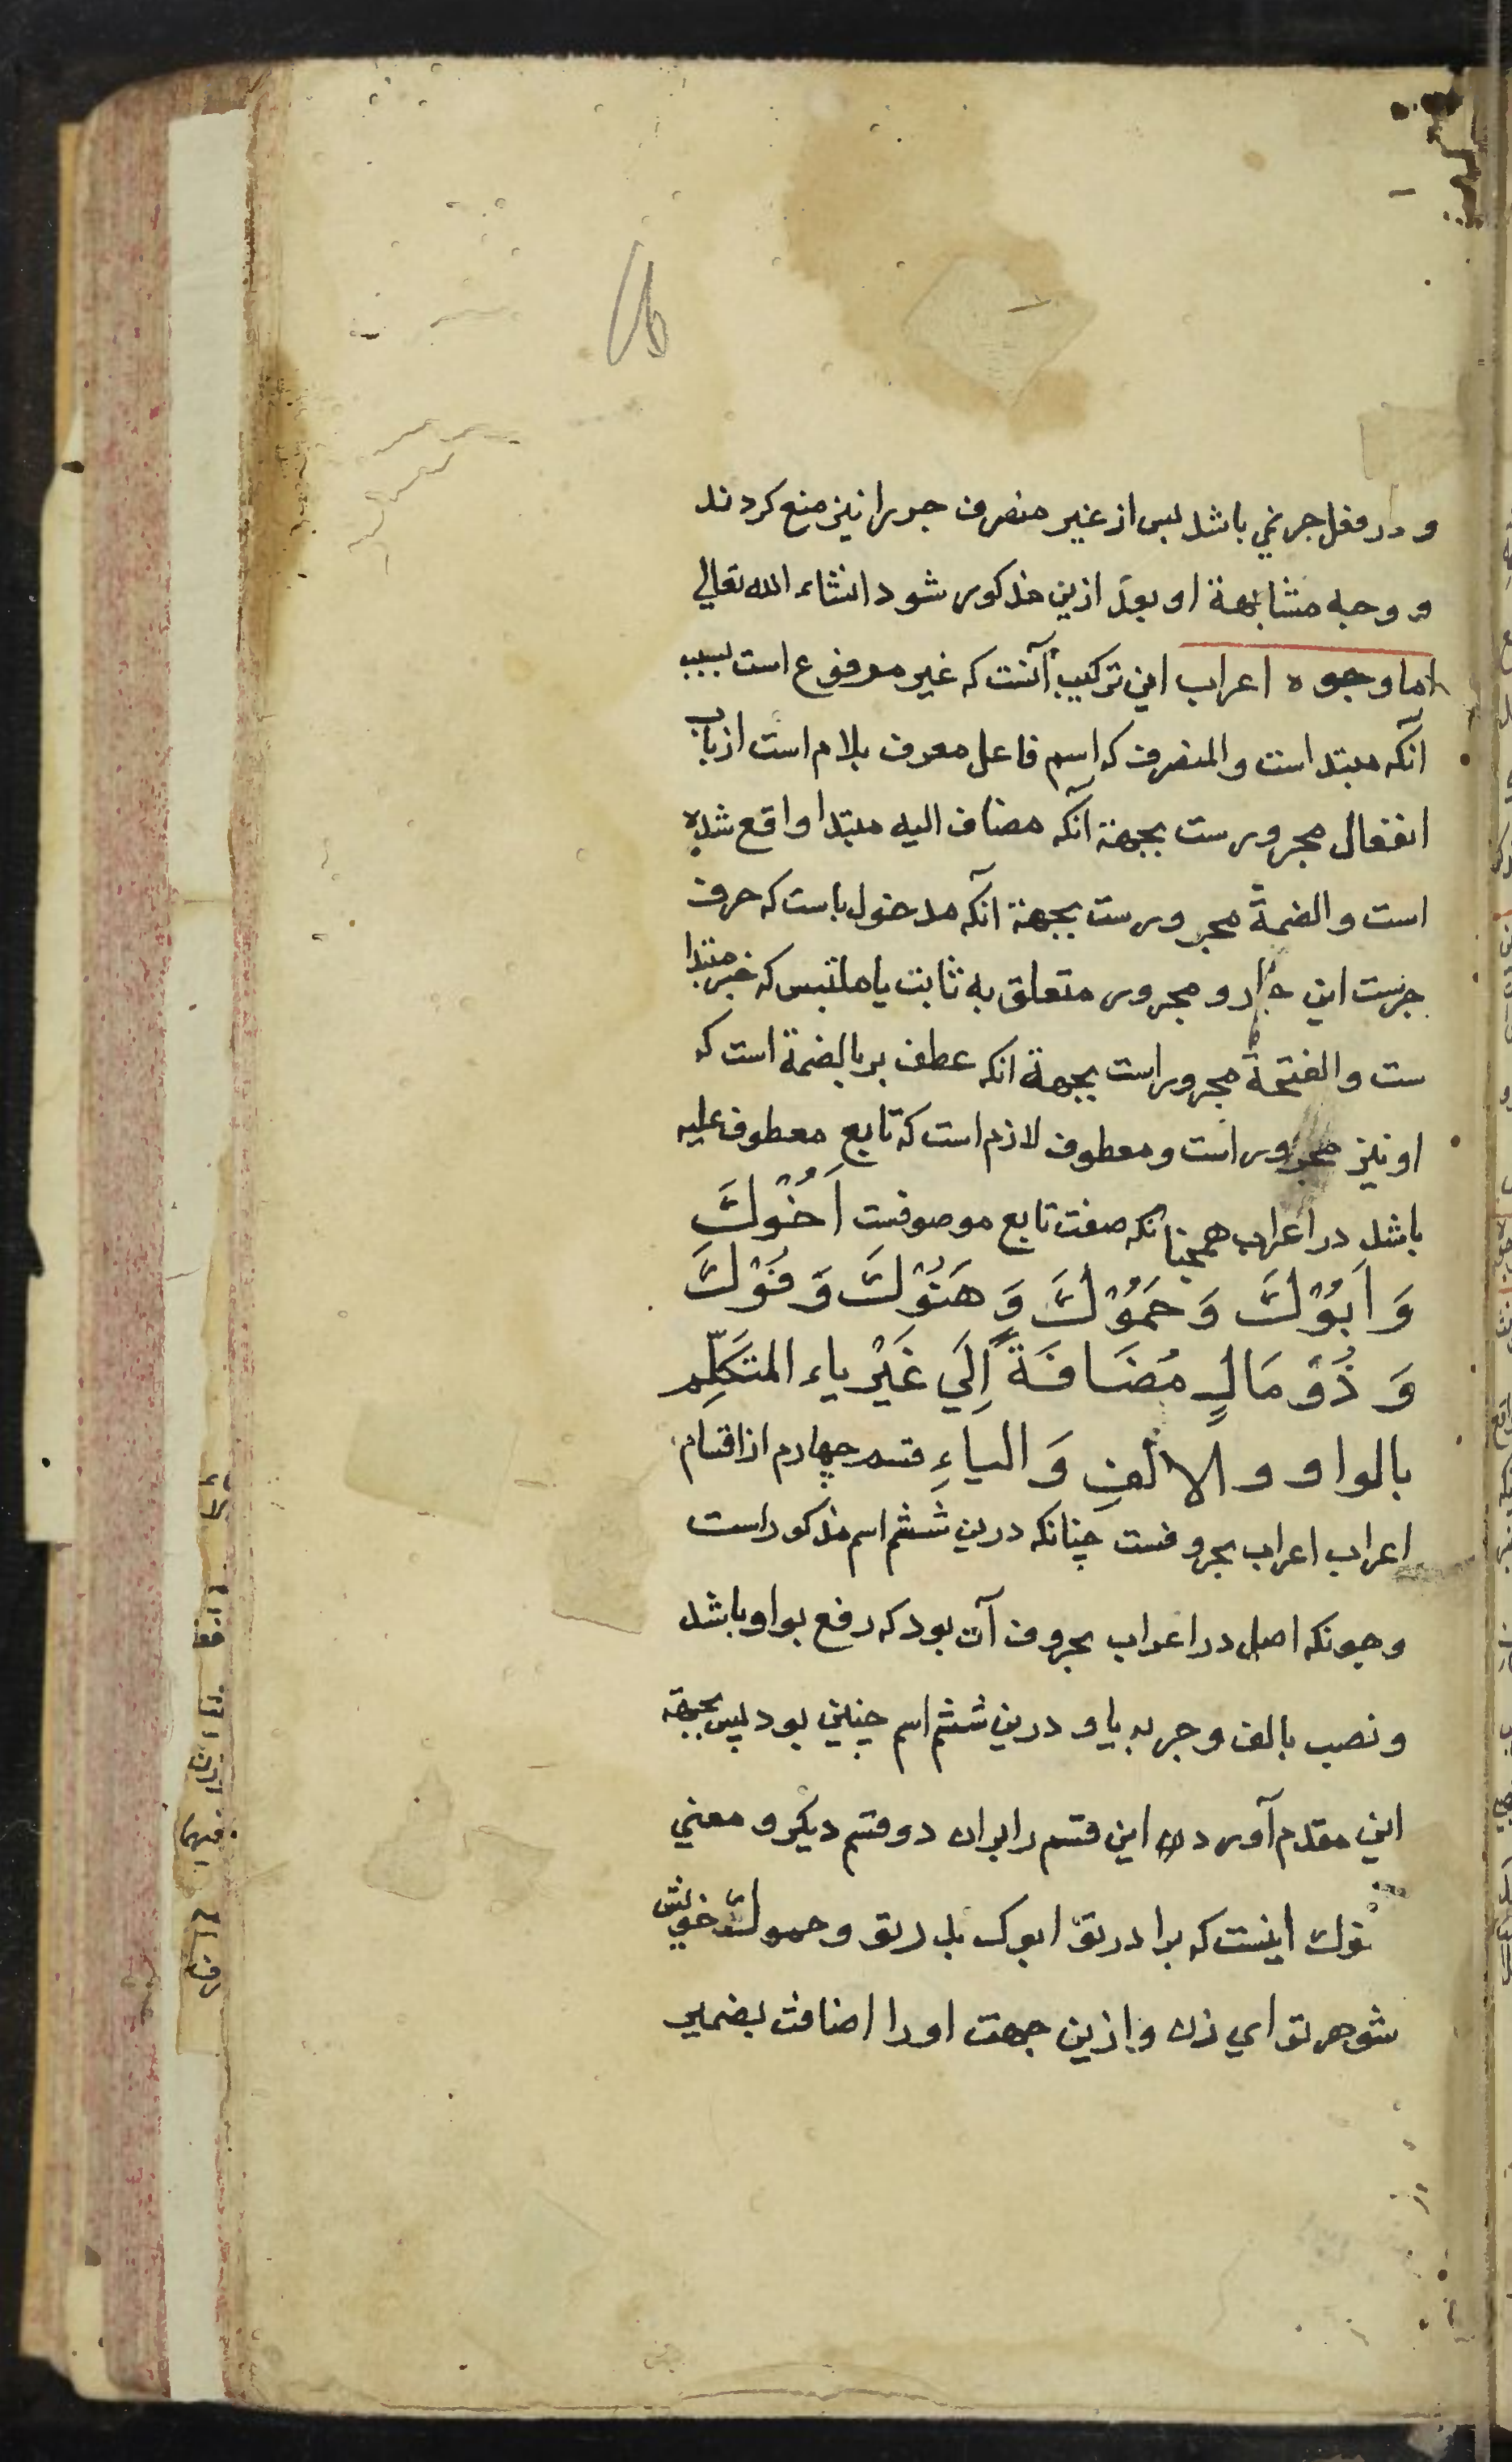 و در فعل جر نمي باشد پس از غير منصرف جر را نيز منع كردند
و وجه مشابهة او بعد ازين مذكور شود انشاء الله تعالي
اما وجوه اعراب اين تركيب آنست كه غير مرفوع است بسبب
آنكه مبتداست و المنصرف كه اسم فاعل معرف بلام است از باب
انفعال مجرورست بجهة آنكه مضاف اليه مبتدا واقع شده
است و الضمة مجرورست بجهة آنكه مدخول باست كه حرف
جرست اين جار و مجرور متعلق به ثابت يا ملتبس كه خبر مبتدا
ست و الفتحة مجرور است بجهة انكه عطف بر بالضمة است كه
او نيز مجرور است و معطوف لازم است كه تابع معطوف عليه
باشد در اعراب همچنانكه صفت تابع موصوفست اَخُوْكَ
وَ اَبُوْكَ وَ حَمُوْكَ وَ هَنُوْكَ وَ فُوْكَ
وَ ذُوْ مَالٍ مُضَافَةً اِلَي غَيْرِ ياء المتَكَلِّم
بالواو و الالفِ وَ الياءِ قسم چهارم از اقسام
اعراب اعراب بحروفست چنانكه درين ششم اسم مذكور است
و چونكه اصل در اعراب بحروف آن بود كه رفع بواو باشد
و نصب بالف و جر به يا و درين ششم اسم چنين بود پس بجهة
اين مقدم آوردن اين قسم را بران دو قسم ديكر و معني
خوك اينست كه برادر تو ابوك پدر تو و حموك خويش
شوهر تو اي زن و ازين جهت او را اضافت بضمير